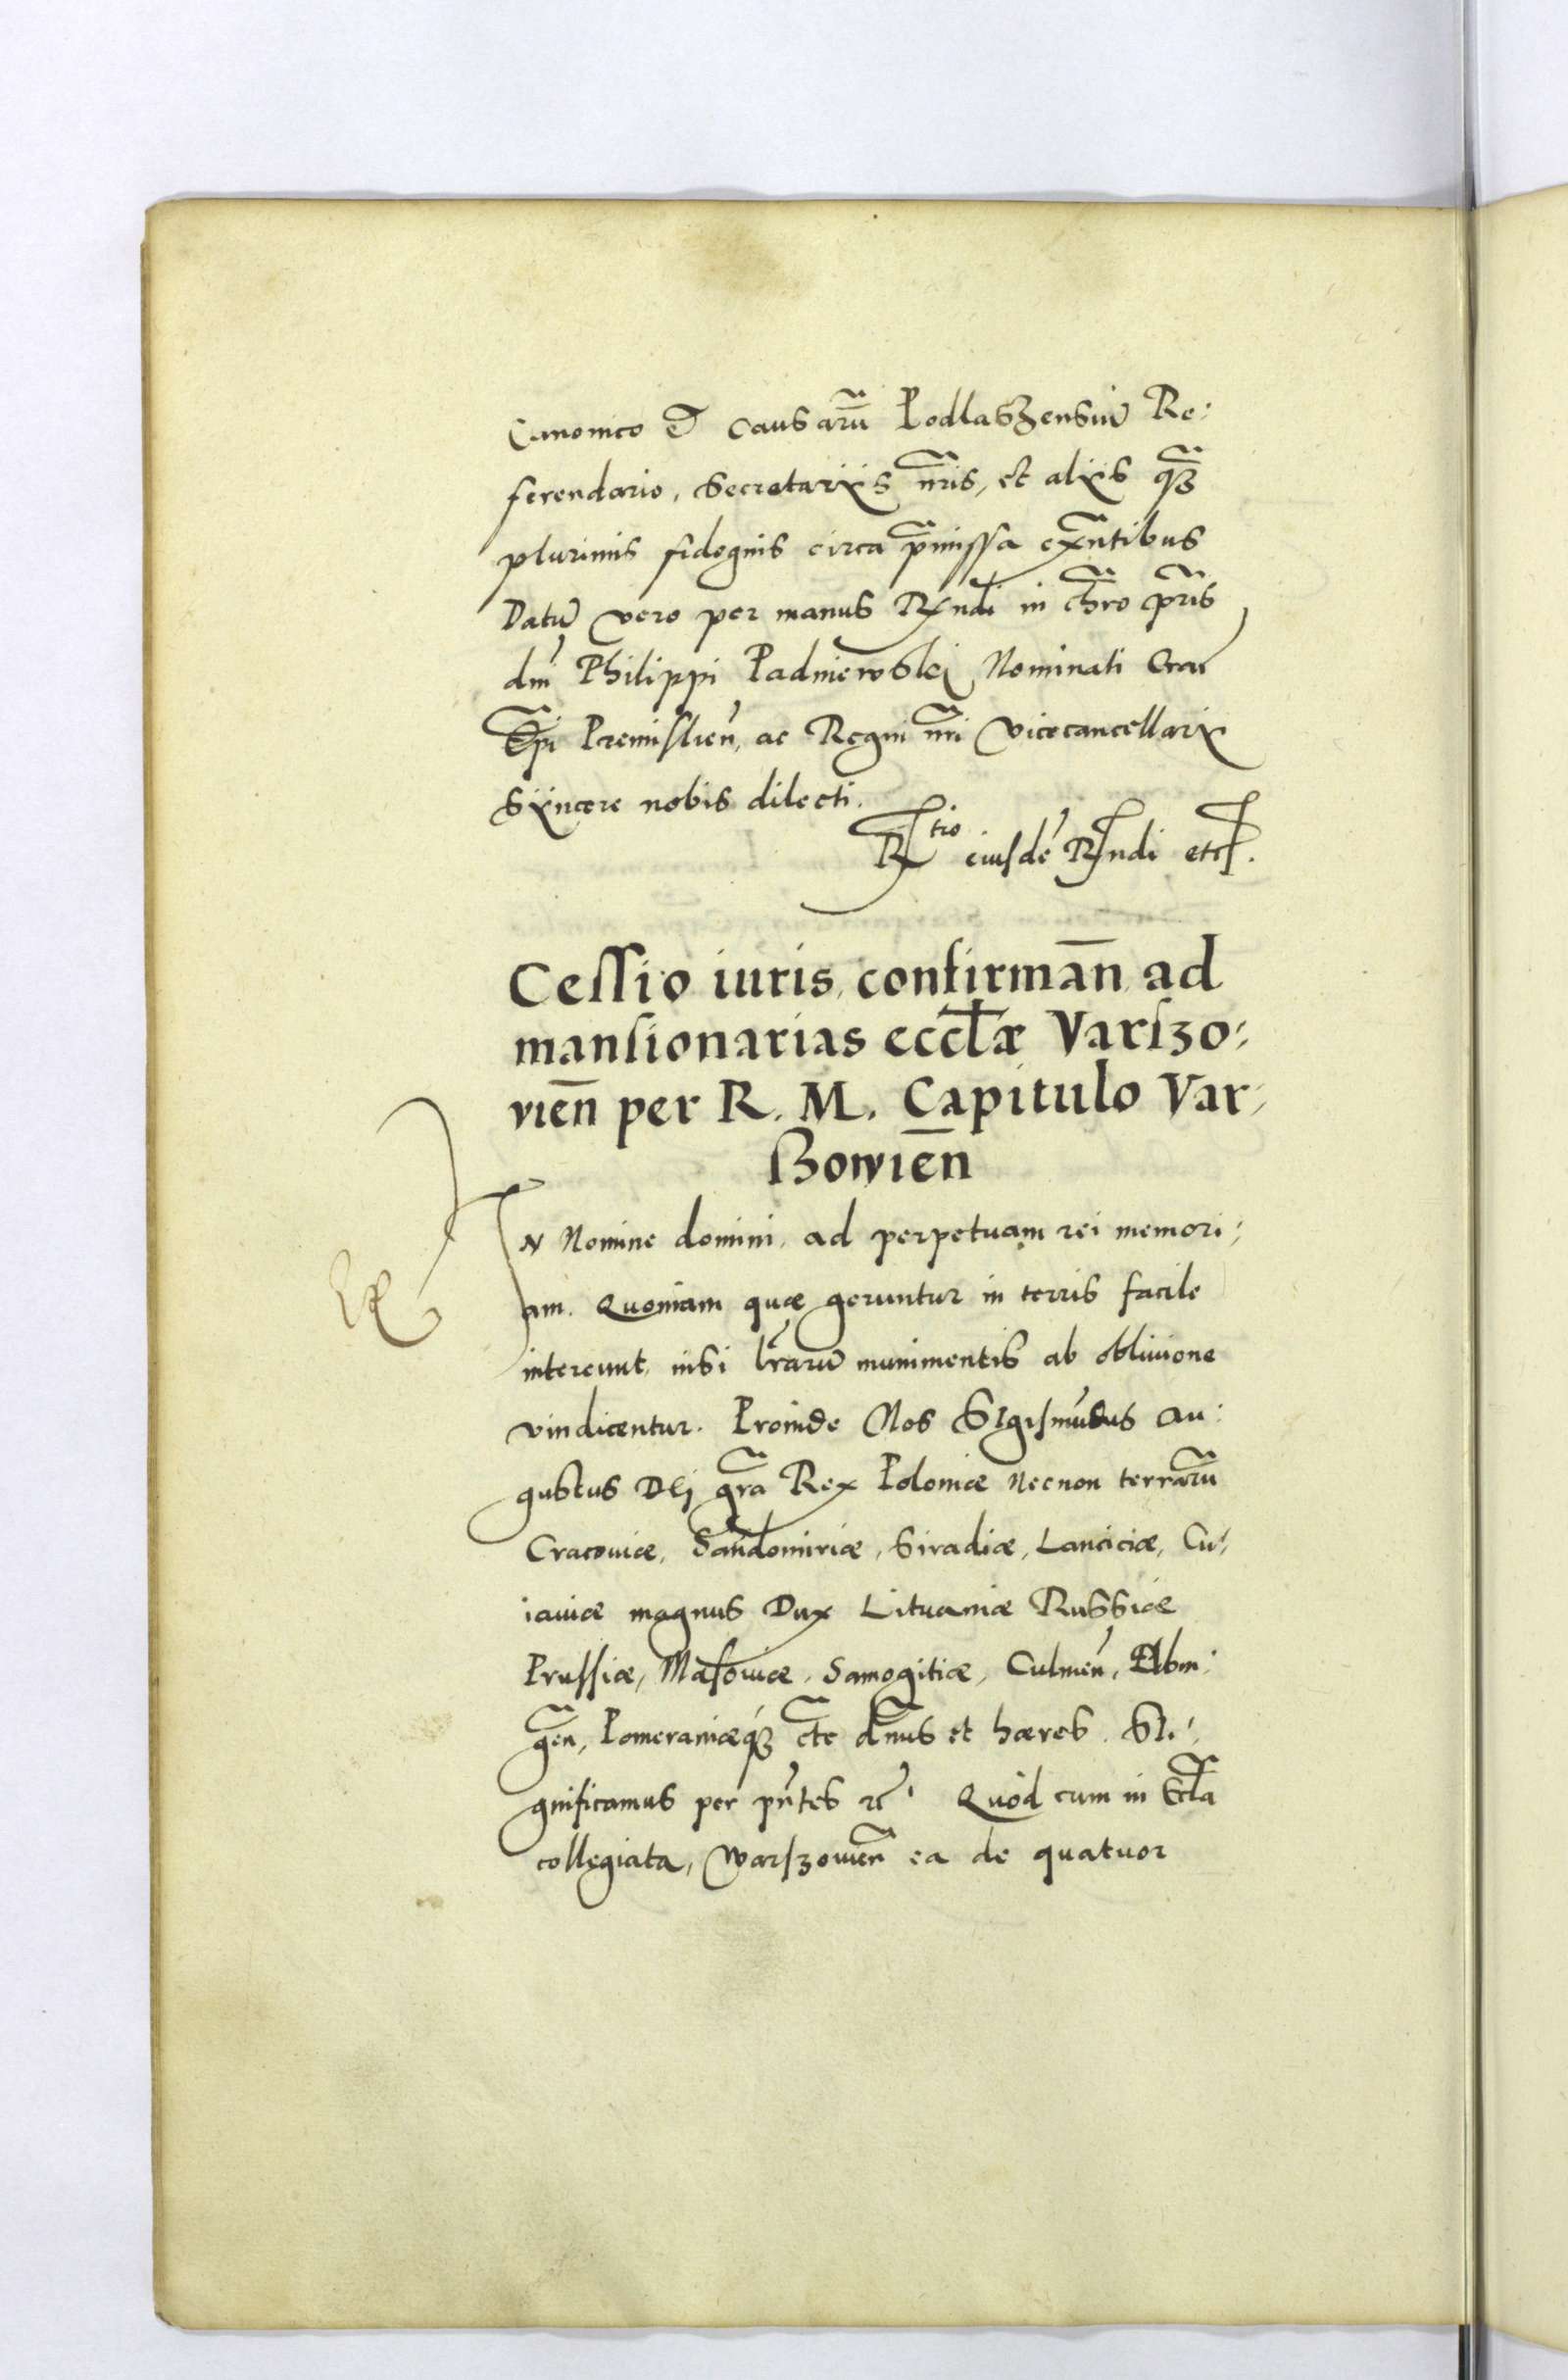 Canonico et causarũ Podlaszensiũ Re:
ferendario, Secretarijs nr̃is, et alijs q̃z
plurimis fidegnis circa p̃missa exñtibus
Datũ vero per manus Rndi in chr̃o pr̃is
dni Philippi Padniewskj Nominati Crac̃
Ep̃i Premislien̄, ac Regni nr̃i Vicecancellarij
Sÿncere nobis dilecti.
R tio eiusdẽ Rndi etc.
Cessio iuris, confirmañ ad
mansionarias eccłæ Varszo:
vień per R. M. Capitulo Var:
szowień
IN Nomine domini, ad perpetuam rei memori:
am. Quoniam quæ geruntur in terris facile
intereunt, nisi lr̃arũ munimentis ab obliuione
vindicentur. Proinde Nos SIgismũdus Au:
gustus DEj gr̃a Rex Poloniæ Necnon terrarũ
Cracouiæ, Sandomiriæ, Siradiæ, Lanciciæ, Cu:
iauiæ magnus Dux Lituaniæ Russiæ
Prussiæ, Masouiæ, Samogitiæ, Culmeñ, Elbin:
geñ, Pomeraniæq́z etc̃ dñus et hæres. SI:
gnificamus per pñtes rc̃ Quòd cum in Eccła
collegiata, Warszouieñ ea de quatuor